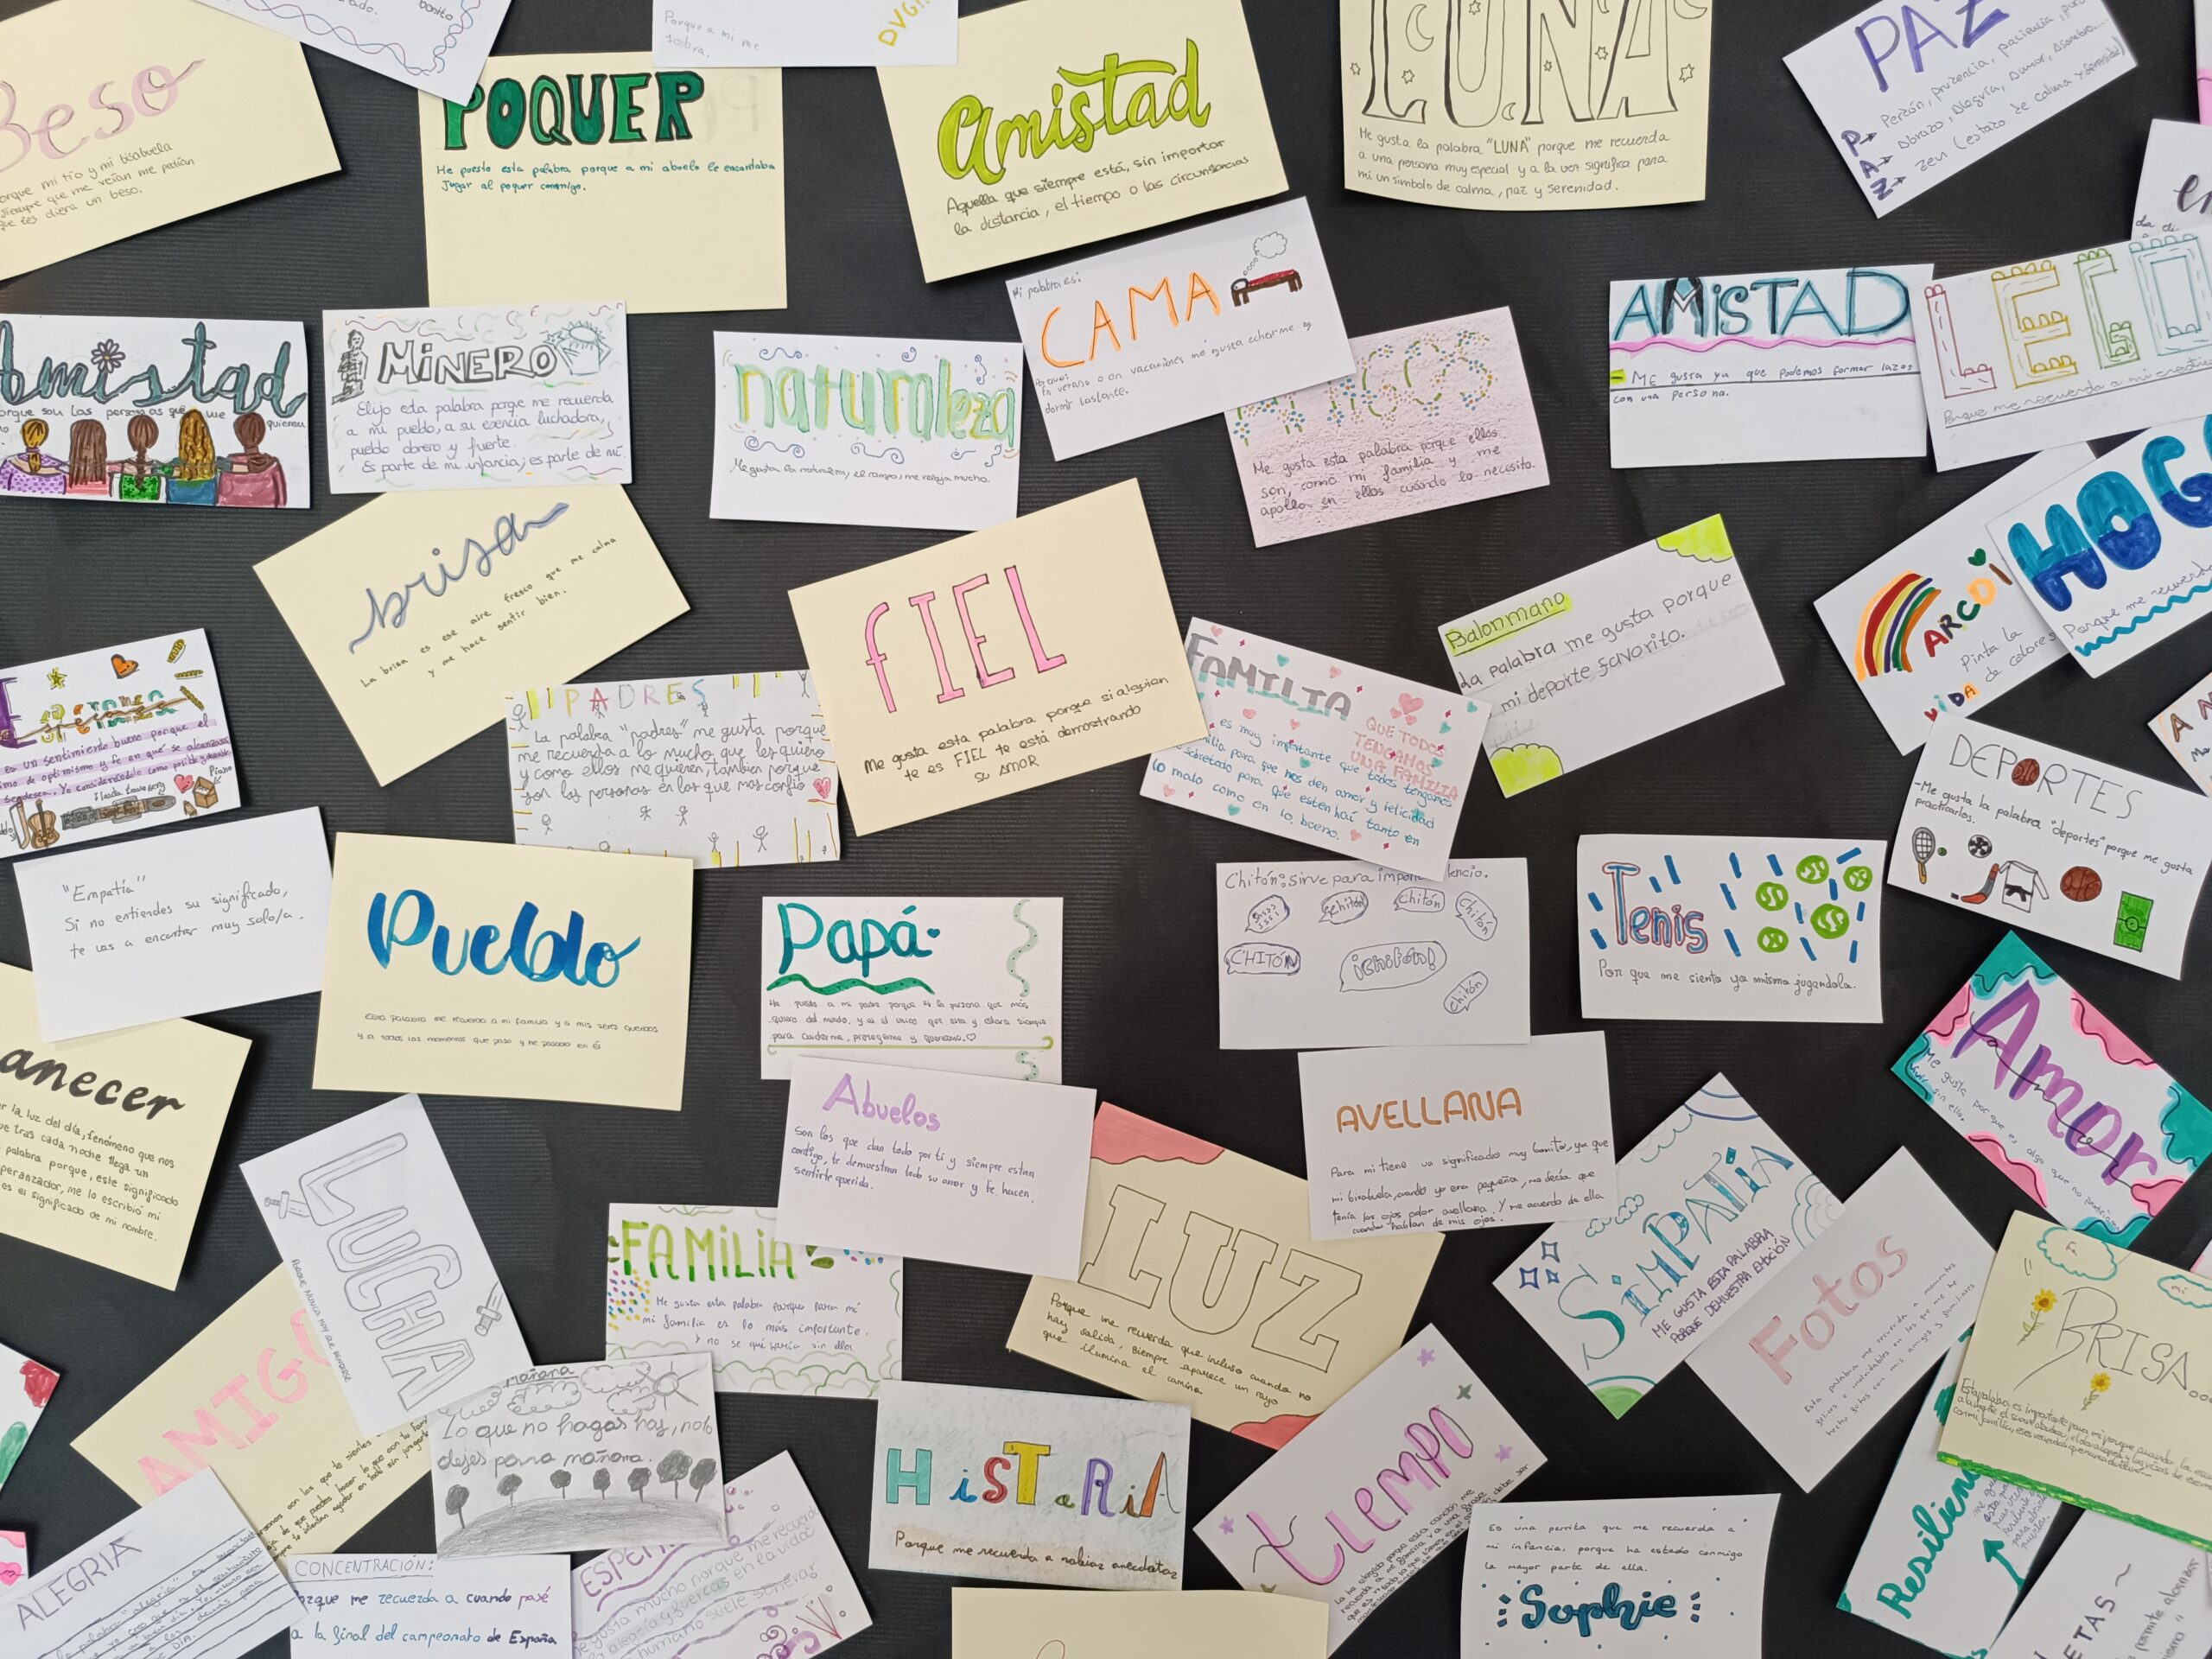 bonito
Porque a mi me
sobra.
Beso
porque mi tío y mi bisabuela
siempre que me veían me pedían
que les diera un beso.
POQUER
He puesto esta palabra porque a mi abuelo le encantaba
Jugar al poquer conmigo.
Amistad
Aquella que siempre está, sin importar
la distancia, el tiempo o las circunstancias
LUNA
Me gusta la palabra "LUNA" porque me recuerda
a una persona muy especial y a la vez significa para
mi un símbolo de calma, paz y serenidad.
PAZ
P→ Perdón, prudencia, paciencia, puro
A→ Abrazo, Alegría, Amor, Asombro...
Z→ Zen (estado de calma y serenidad)
Amistad
porque son las personas que me
quieren
MINERO
Elijo esta palabra porque me recuerda
a mi pueblo, a su esencia luchadora,
pueblo obrero y fuerte.
Es parte de mi infancia; es parte de mí.
naturaleza
Me gusta la naturaleza, el campo, me relaja mucho.
Mi palabra es:
CAMA
Porque:
En verano o en vacaciones me gusta echarme y
dormir bastante.
AMIGOS
Me gusta esta palabra porque ellos
son, como mi familia y me
apoyo en ellos cuándo lo necesito.
AMISTAD
- Me gusta ya que podemos formar lazos
con una persona.
LEGO
Porque me recuerda a mi
brisa
La brisa es ese aire fresco que me calma
y me hace sentir bien.
FIEL
Me gusta esta palabra porque si alguien
te es FIEL te está demostrando
su AMOR
Balonmano
La palabra me gusta porque
mi deporte favorito.
ARCOI
Pinta la
VIDA
de colores
HOG
Porque me recuerda
Esperanza
es un sentimiento bueno porque el
Flauta travesera
Piano
PADRES
La palabra "padres" me gusta porque
me recuerda a lo mucho que les quiero
y como ellos me quieren, también porque
son las personas en las que mas confio
FAMILIA
QUE TODOS
TENGAMOS
UNA FAMILIA
es muy importante que todos tengamos
familia para que nos den amor y felicidad
sobretodo para que esten haí tanto en
lo malo como en lo bueno.
DEPORTES
-Me gusta la palabra "deportes" porque me gusta
practicarlos.
"Empatía"
Si no entiendes su significado,
te vas a encontrar muy solo/a.
Pueblo
Esta palabra me recuerda a mi familia y a mis seres queridos
y a todos los momentos que paso y he pasado en él
Papá
He puesto a mi padre porque es la persona que más
quiero del mundo, y es el único que esta y estará siempre
para cuidarme, protegerme y quererme.
Chitón: Sirve para impon lencio.
Chitón
Chitón
Chitón
CHITÓN
¡chitón!
Chitón
Tenis
Por que me siento yo misma jugandola.
Amor
Me gusta por que es algo que no podríamos
vivir sin ello.
anecer
er la luz del día, fenómeno que nos
que tras cada noche llega un
palabra porque, este significado
peranzador, me lo escribió mi
es el significado de mi nombre.
Abuelos
Son los que dan todo por ti y siempre estan
contigo, te demuestran todo su amor y te hacen
sentirte querida.
AVELLANA
Para mi tiene un significado muy bonito, ya que
mi bisabuela, cuando yo era pequeña, me decía que
tenía los ojos color avellana. Y me acuerdo de ella
cuando hablan de mis ojos.
LUCHA
PORQUE NUNCA HAY QUE RENDIRSE
FAMILIA
Me gusta esta palabra porque para mí
mi familia es lo más importante.
Y no se qué haría sin ellos
LUZ
Porque me recuerda que incluso cuando no
hay salida, siempre aparece un rayo
que ilumina el camino
SIMPATÍA
ME GUSTA ESTA PALABRA
PORQUE DEMUESTRA EMOCIÓN
Fotos
Esta palabra me recuerda a momentos
BRISA...
AMIGO
Mañana
Lo que no hagas hoy, no lo
dejes para mañana.
HiSToRiA
Porque me recuerda a varias anécdotas
tiEMPO
Resilien
Es una perrita que me recuerda a
mi infancia, porque ha estado conmigo
la mayor parte de ella.
Sophie
ALEGRIA
CONCENTRACIÓN:
porque me recuerda a cuando pasé
a la final del campeonato de España
ESPE
me gusta mucho porque me recuerda
alegría y fuerzas en la vida
humano suele soñar
ETAS ~